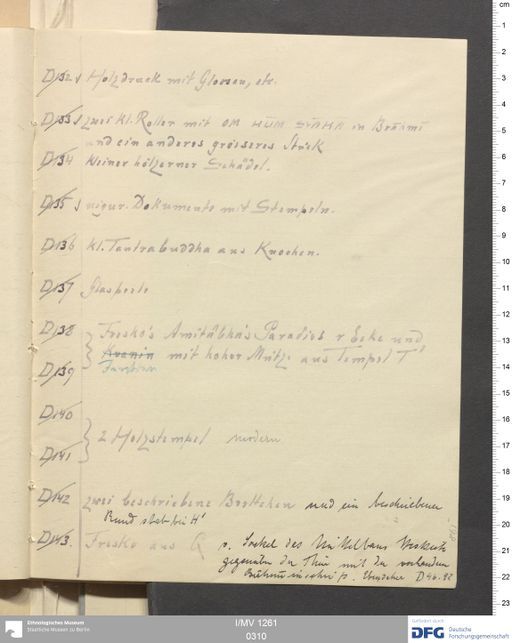 D132 Holzdruck mit Glossen, etc.
D133 zwei kl. Roller mit OM HŪM SVAHA in Brāhmī
und ein anderes grösseres Stück
D134 kleiner hölzerner Schädel.
D135 uigur. Dokumente mit Stempeln.
D136 kl. Tantrabuddha aus Knochen.
D137 Glasperle
D138 Fresko's Amitâbha's Paradies r Ecke und
mit hoher Mütze aus Tempel T
D139
D140
2 Holzstempel modern
D141
D142 zwei beschriebene Brettchen und ein beschriebener
Rundstab bei H'
D143. Fresko aus Q v. Sockel des Mittelbaus Westseite
gegenüber der Thür mit der
D 40. 92
cm
1
2
3
4
5
6
7
8
9
10
11
12
13
14
15
16
17
18
19
20
21
22
23
Ethnologisches Museum
Staatliche Museen zu Berlin
I/MV 1261
0310
Gefördert durch
DFG Deutsche
Forschungsgemeinschaft